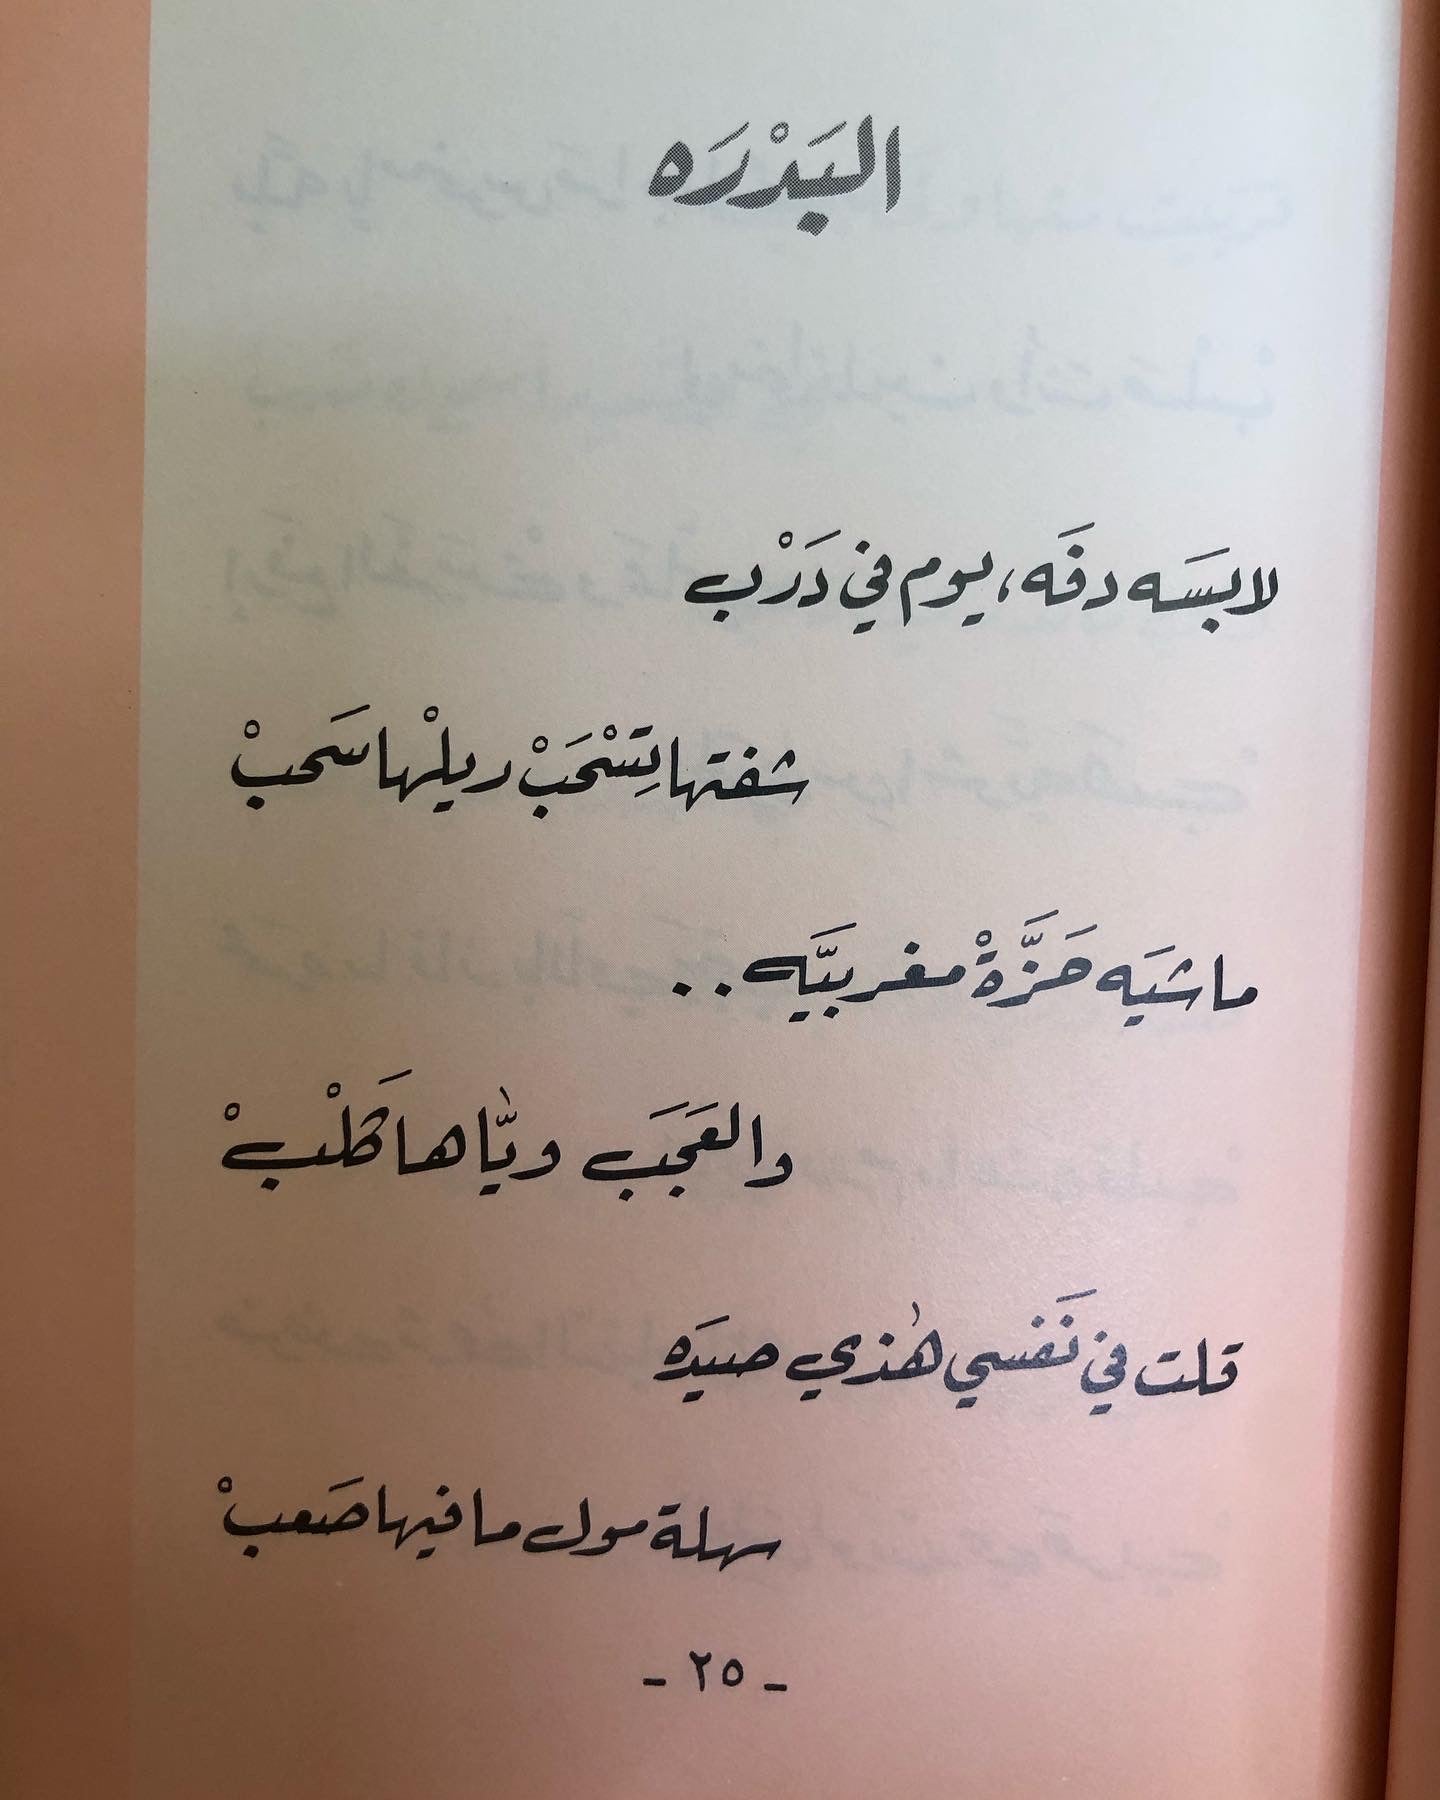 البَدْرَه
لابسَه دفَه، يوم في دَرْب
شفتها تِسْحَبْ ريلْها سَحبْ
ماشيَه حَزَّةْ مغربيَّه..
والعَجَب ويّاها كَلْبْ
قلت في نَفسي هٰذي صيدَه
سهلة مول ما فيها صَعبْ
- ٢٥ -